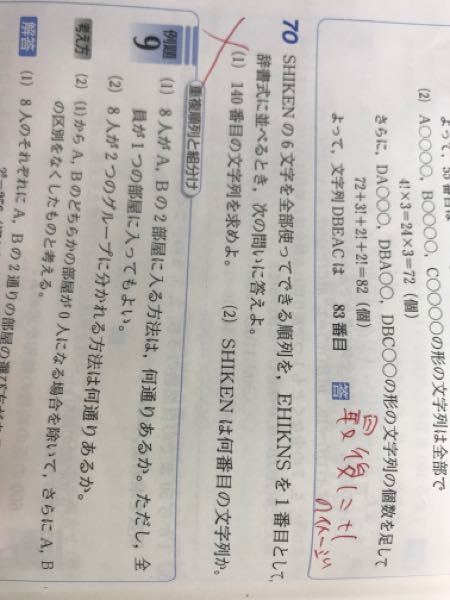 よって, 55番目は
(2) A○○○○, B○○○○, C○○○○の形の文字列は全部で
4!×3=24×3=72 (個)
さらに, DA○○○, DBA○○, DBC○○の形の文字列の個数を足して
72+3!+2!+2!=82 (個)
よって, 文字列DBEACは 83番目 答
最後に+1
70 SHIKENの6文字を全部使ってできる順列を, EHIKNSを1番目として,
辞書式に並べるとき, 次の問いに答えよ。
(1) 140番目の文字列を求めよ。 (2) SHIKENは何番目の文字列か。
例題 9 重複順列と組分け
(1) 8人がA, Bの2部屋に入る方法は, 何通りあるか。ただし, 全
員が1つの部屋に入ってもよい。
(2) 8人が2つのグループに分かれる方法は何通りあるか。
考え方 (2) (1)からA, Bのどちらかの部屋が0人になる場合を除いて, さらにA, B
の区別をなくしたものと考える。
解答 (1) 8人のそれぞれにA, Bの2通りの部屋の選び方がある